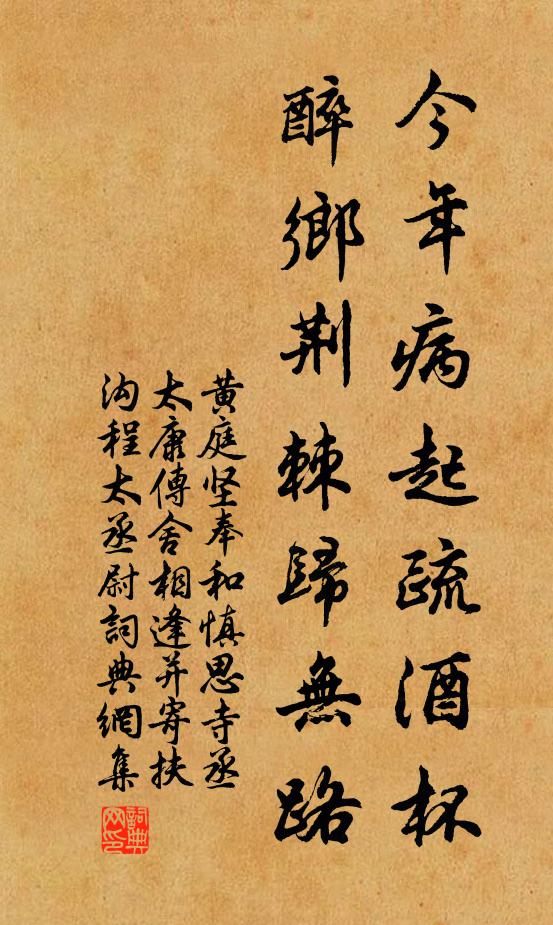 今年病起疏酒杯
醉鄉荆棘歸無路
黄庭坚奉和慎思寺丞
太康傳舍相逢并寄扶
沟程太丞尉詞典網集
詞典網印